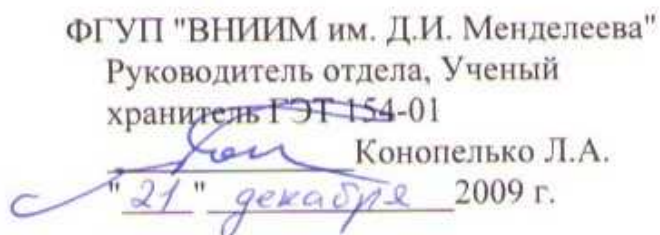 ФГУП "ВНИИМ им. Д.И. Менделеева"
Руководитель отдела, Ученый
хранитель ГЭТ 154-01
Конопелько Л.А.
"21" декабря 2009 г.